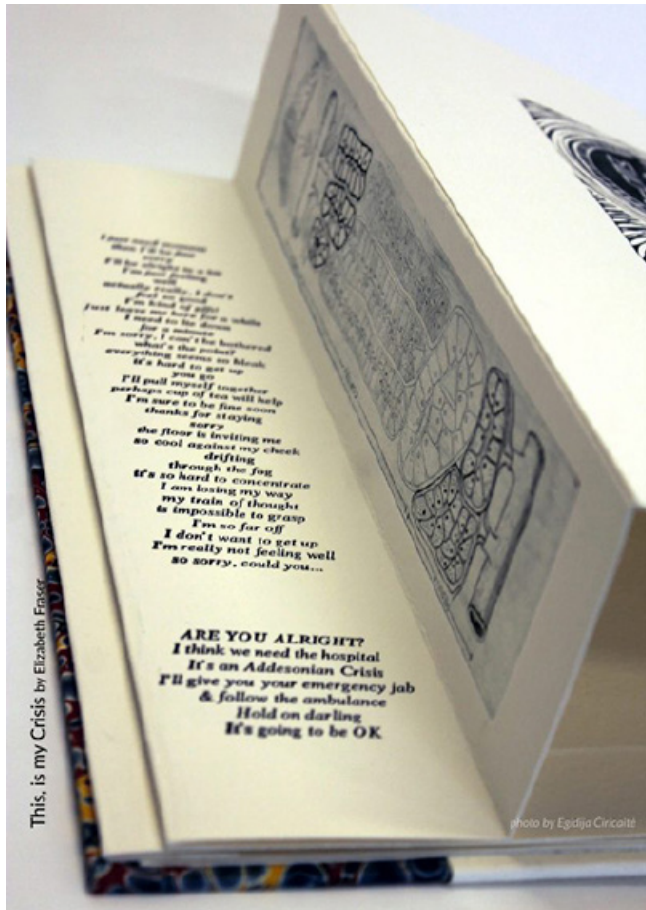 I just need sommme
then I'll be fine
sorry
I'll be alright in a bit
I'm just feeling
well
actually really, I don't
feel so good
I'm kind of
Just leave me here for a while
I need to lie down
for a minute
I'm sorry, I can't be bothered
what's the point?
everything seems so bleak
it's hard to get up
you go
I'll pull myself together
perhaps cup of tea will help
I'm sure to be fine soon
thanks for staying
sorry
the floor is inviting me
so cool against my cheek
drifting
through the fog
it's so hard to concentrate
I am losing my way
my train of thought
is impossible to grasp
I'm so far off
I don't want to get up
I'm really not feeling well
so sorry, could you...
ARE YOU ALRIGHT?
I think we need the hospital
It's an Addesonian Crisis
I'll give you your emergency jab
& follow the ambulance
Hold on darling
It's going to be OK
This, is my Crisis by Elizabeth Fraser
photo by Egidija Čiricaitė